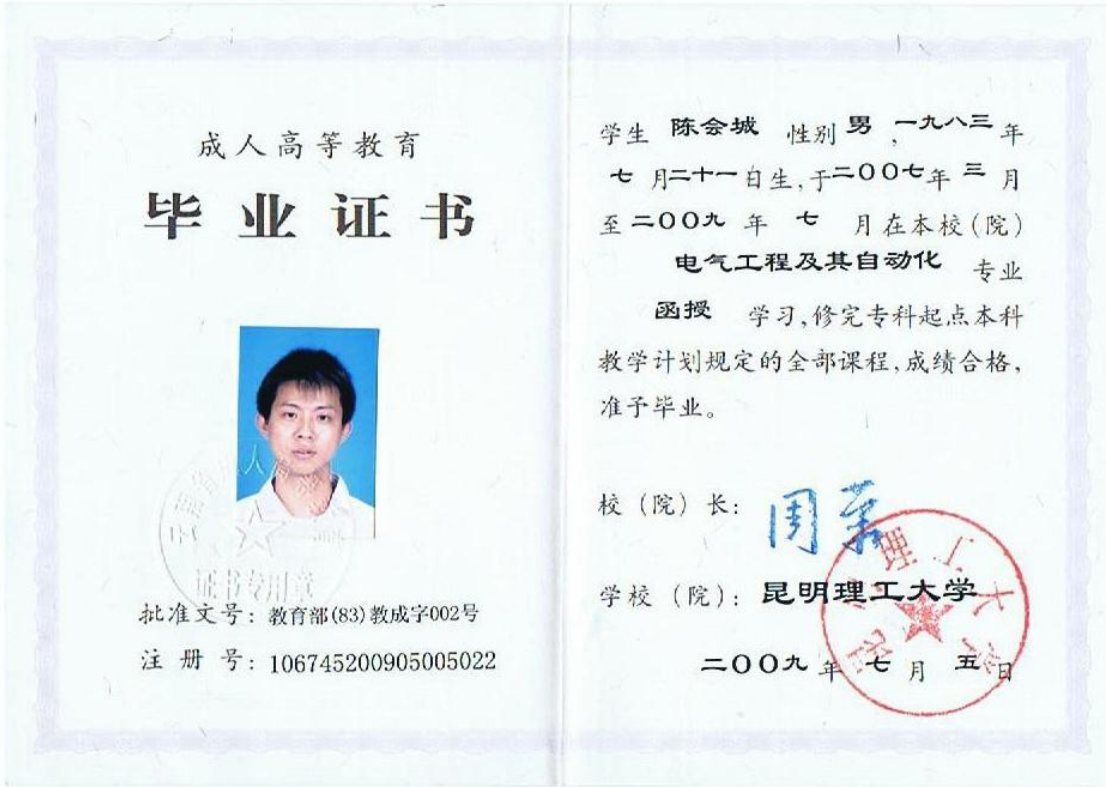 成人高等教育
毕业证书
云南省成人高等教育
证书专用章
批准文号：教育部(83)教成字002号
注册号：106745200905005022
学生 陈会城 性别 男，一九八三年
七月二十一日生，于二〇〇七年三月
至二〇〇九年七月在本校（院）
电气工程及其自动化 专业
函授 学习，修完专科起点本科
教学计划规定的全部课程，成绩合格，
准予毕业。
校（院）长：周荣
学校（院）：昆明理工大学
二〇〇九年七月五日
昆明理工大学